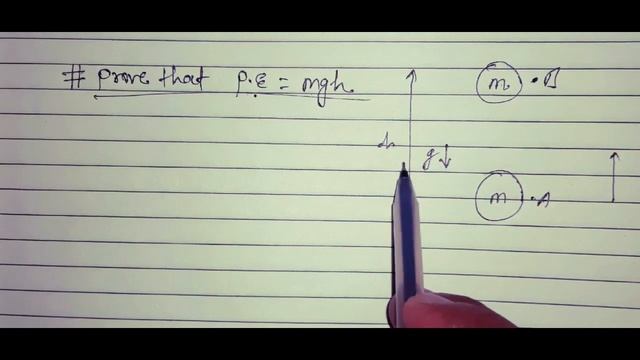 # Prove that P.E = mgh
m . B
h g↓
m . A